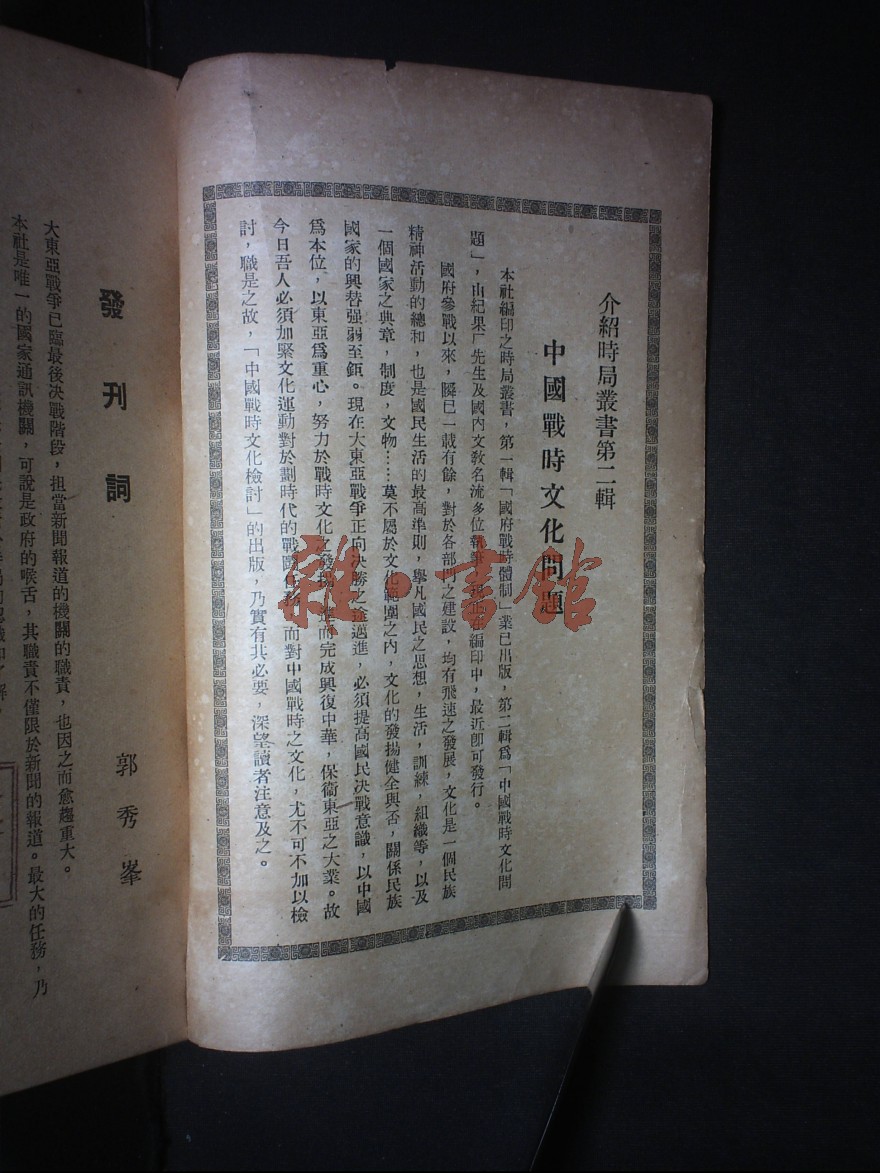 介紹時局叢書第二輯
中國戰時文化問題
本社編印之時局叢書，第一輯「國府戰時體制」業已出版，第二輯爲「中國戰時文化問
題」，由紀果厂先生及國內文敎名流多位執筆，現正在編印中，最近卽可發行。
國府參戰以來，瞬已一載有餘，對於各部門之建設，均有飛速之發展，文化是一個民族
精神活動的總和，也是國民生活的最高準則，擧凡國民之思想，生活，訓練，組織等，以及
一個國家之典章，制度，文物……莫不屬於文化範圍之內，文化的發揚健全與否，關係民族
國家的興替强弱至鉅。現在大東亞戰爭正向決勝之途邁進，必須提高國民決戰意識，以中國
爲本位，以東亞爲重心，努力於戰時文化之發揚，而完成興復中華，保衞東亞之大業。故
今日吾人必須加緊文化運動對於劃時代的戰國任務，而對中國戰時之文化，尤不可不加以檢
討，職是之故，「中國戰時文化檢討」的出版，乃實有其必要，深望讀者注意及之。
發刊詞
郭秀峯
大東亞戰爭已臨最後決戰階段，担當新聞報道的機關的職責，也因之而愈趨重大。
本社是唯一的國家通訊機關，可說是政府的喉舌，其職責不僅限於新聞的報道。最大的任務，乃
雜·書館